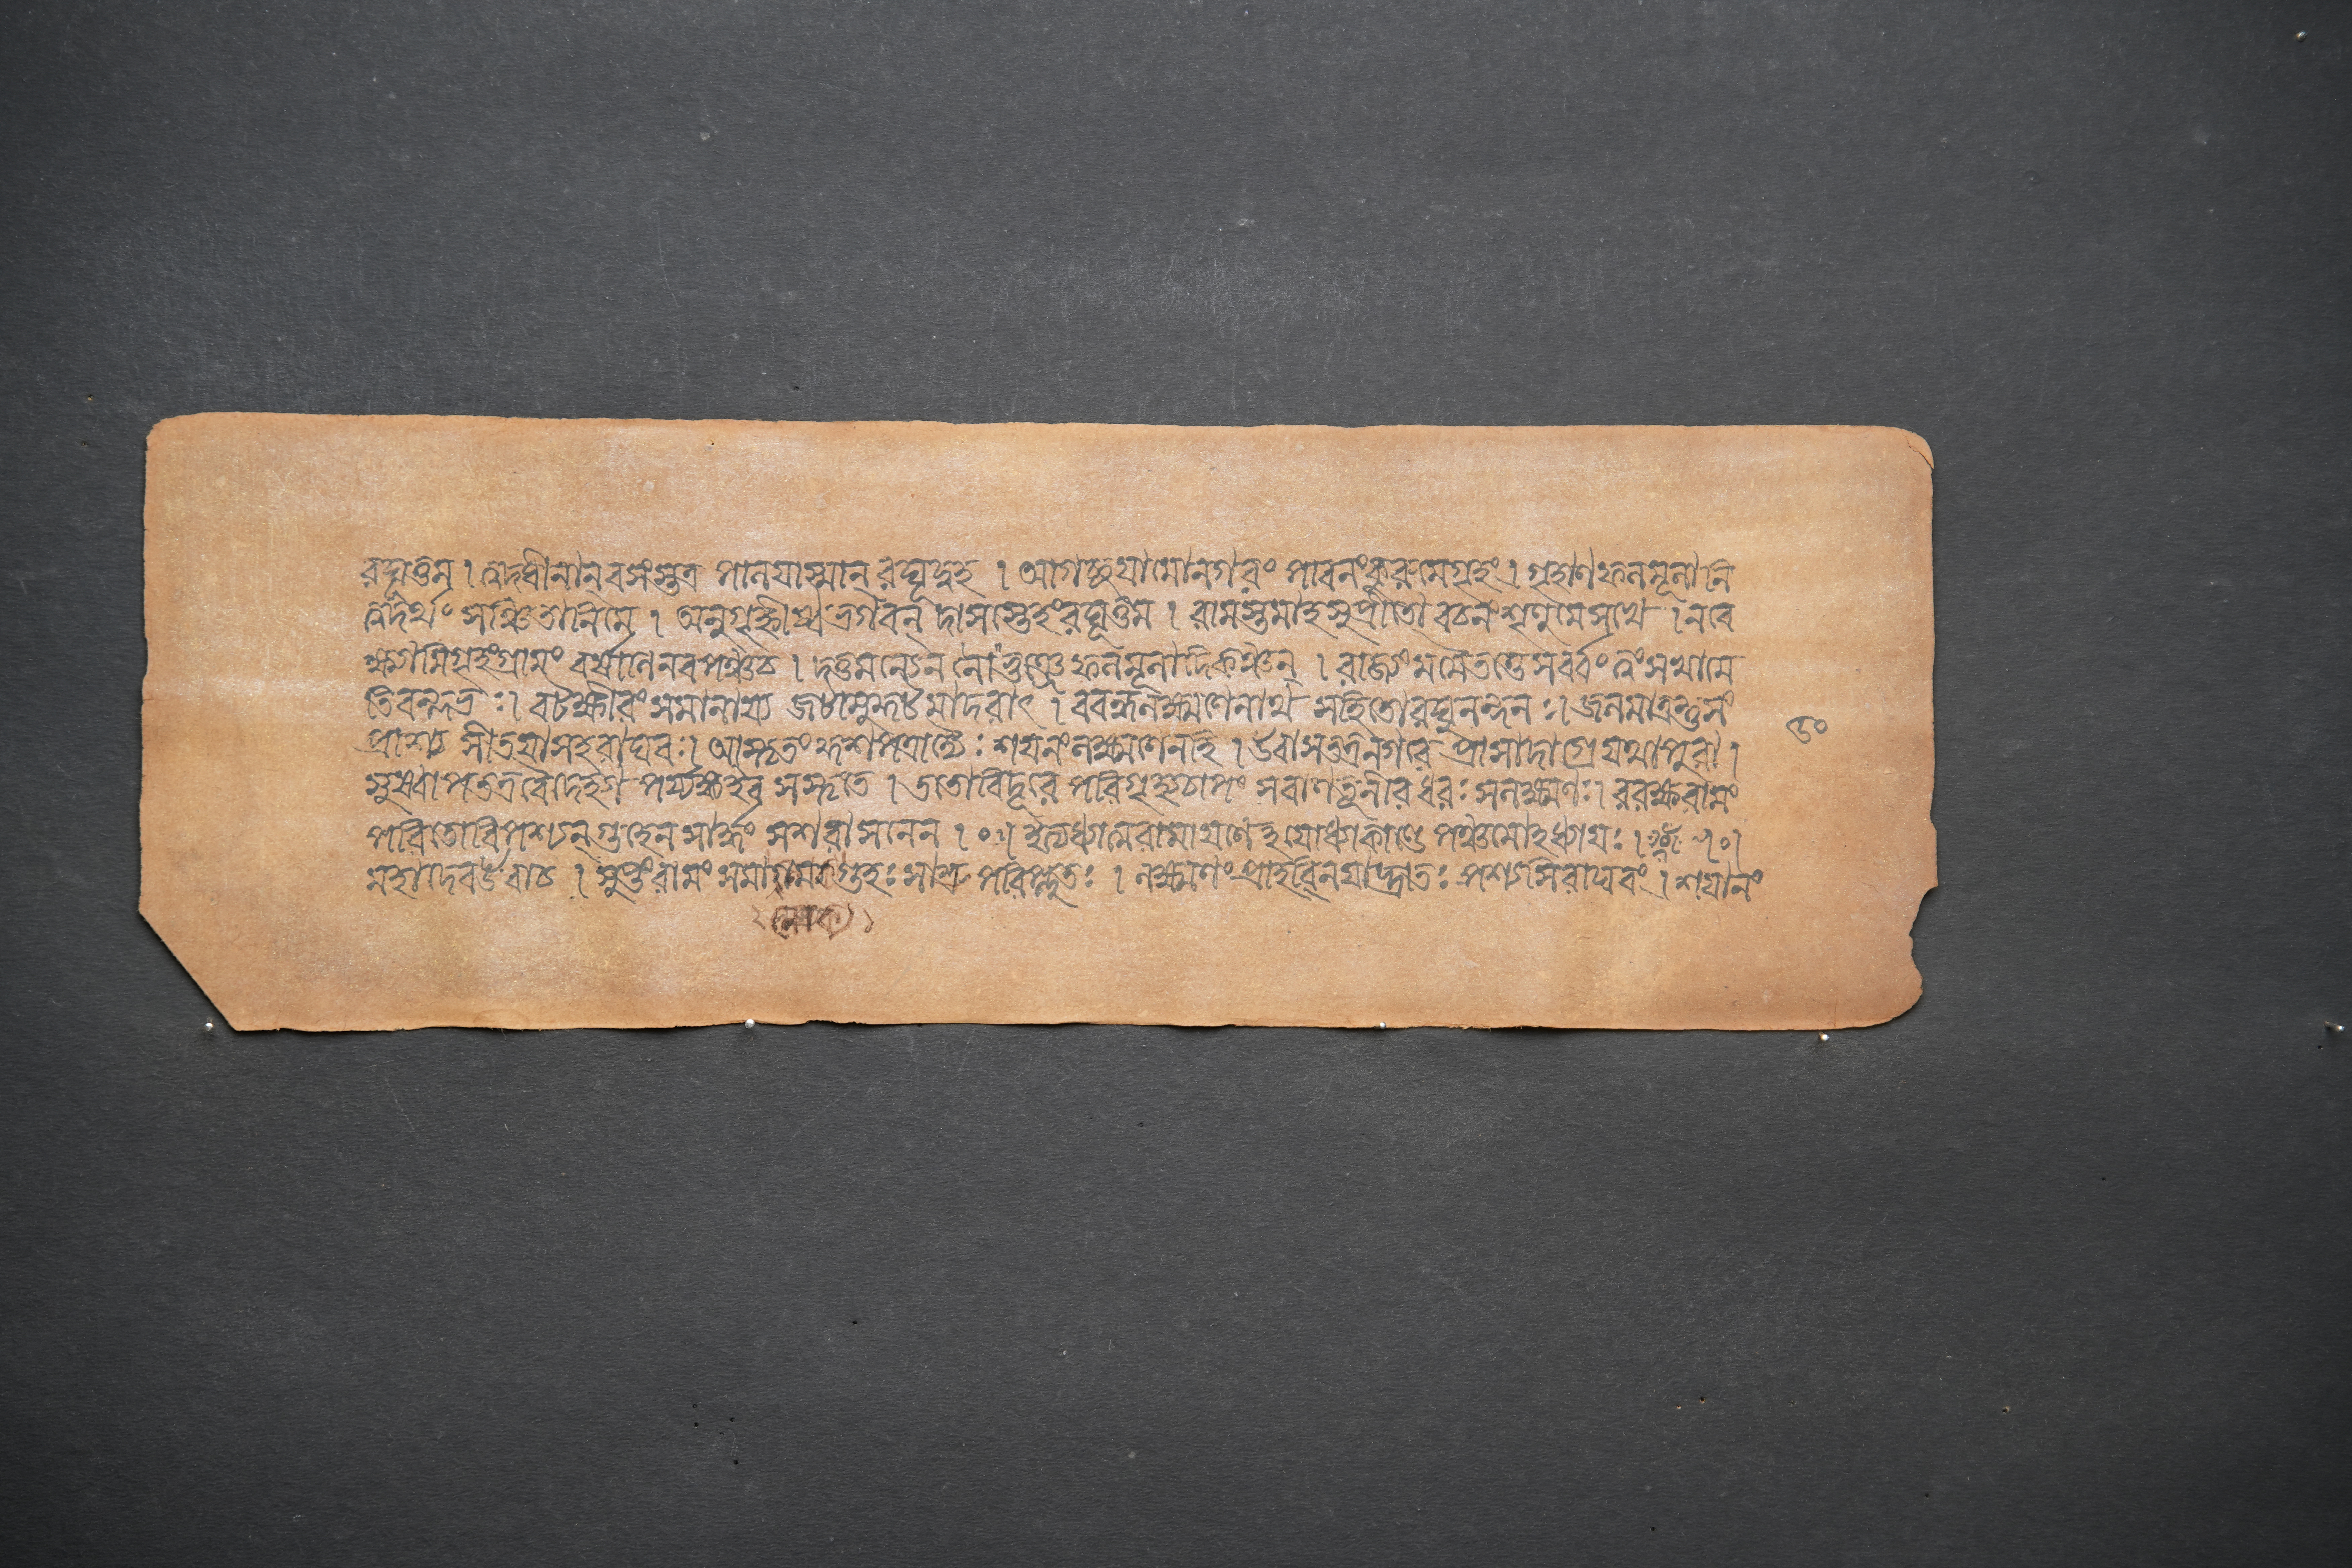 রঘূত্তম । ত্বদধীনান্ বসংস্তত্র পালয়াস্মান্ রঘূদ্বহ । আগচ্ছয়ামোনগরং পাবনংকুরুমেগৃহং । গৃহাণফলমূলানি
ত্বদর্থং সঞ্চিতানিমে । অনুগৃহ্ণীষ্বভগবন্ দাসস্তেহংরঘূত্তম । রামস্তমাহসুপ্রীতো বচনংশৃণুমেসখে । নবে
ক্ষ্যামিগৃহংগ্রামং বর্ষাণিনবপঞ্চচ । দত্তমন্যেননোভুঞ্জেফলমূলাদিকিঞ্চন । রাজ্যংমমৈতত্তেসর্ব্বং ত্বংসখামে
তিবল্লভঃ । বটক্ষীরংসমানায্য জটামুকুটমাদরাৎ । ববন্ধলক্ষ্মণেনাথ সহিতোরঘুনন্দনঃ । জলমাত্রন্তুসং
প্রাশ্য সীতয়াসহরাঘবঃ । আস্তৃতংকুশপত্রাদ্যৈঃ শয়নংলক্ষ্মণেনহি । উবাসতত্রনগরে প্রাসাদাগ্রেযথাপুরা ।
সুষ্বাপতত্রবৈদেহ্যা পর্য্যঙ্কইব সংস্তৃতে । ততোবিদূরে পরিগৃহ্যচাপং সবাণতূণীরধরঃ সলক্ষ্মণঃ । ররক্ষরামং
পরিতোবিপশ্যন্ গুহেনসার্দ্ধং সশরাসনেন । ০ । ইত্যধ্যাত্মরামায়ণেহযোধ্যাকাণ্ডে পঞ্চমোহধ্যায়ঃ । । ০ ।
মহাদেবউবাচ । সুপ্তংরামং সমালোক্য গুহঃ সাশ্রু পরিপ্লুতঃ । লক্ষ্মণংপ্রাহবিনয়াদ্ভ্রাতঃ পশ্যসিরাঘবং । শয়ানং